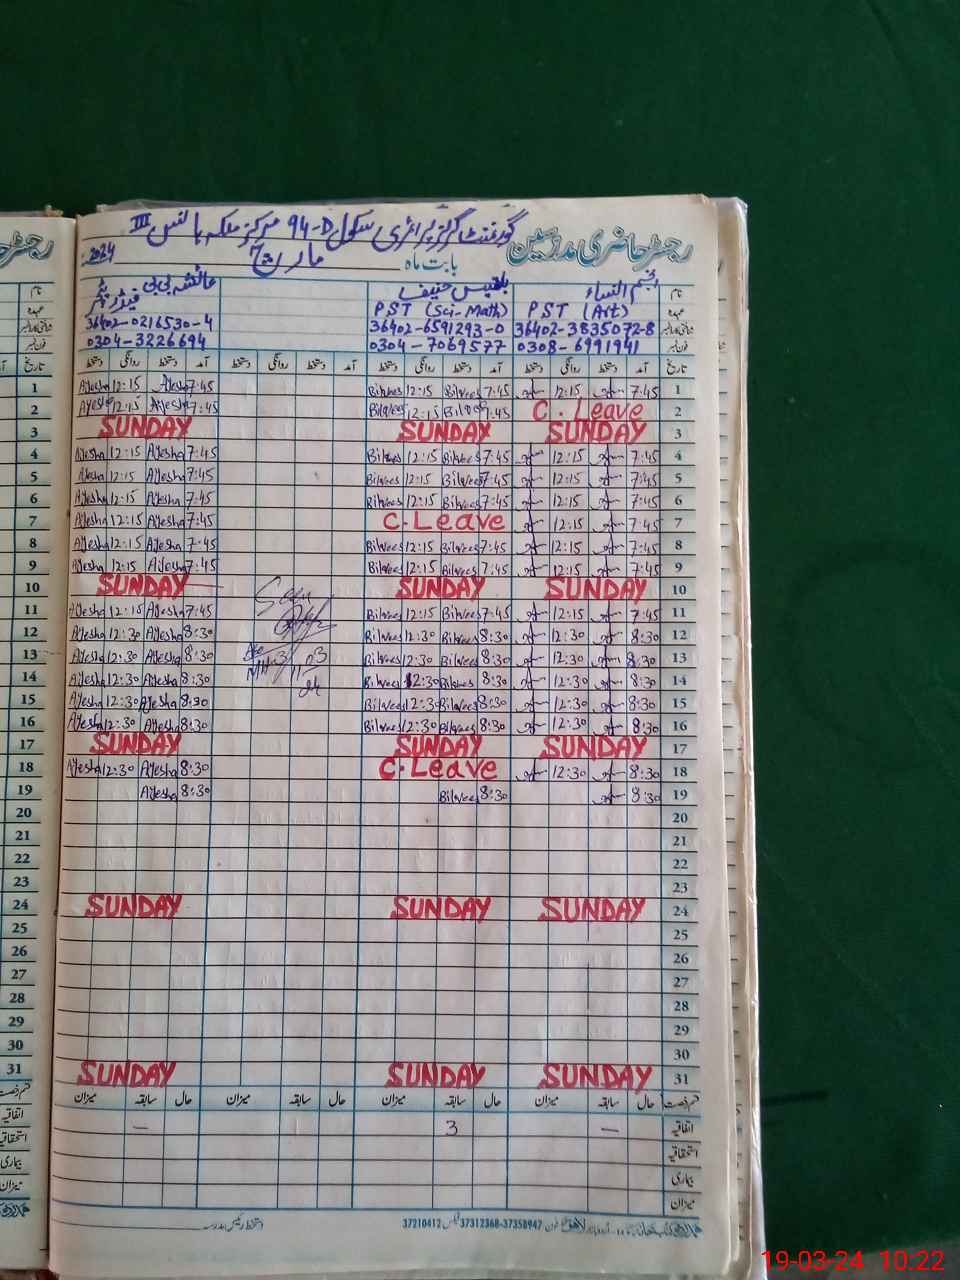 رجسٹر حاضری مدرسین
گورنمنٹ گرلز پرائمری سکول 94-D مرکز ملکہ ہانس III
بابت ماہ مارچ 2024
نام انجم النساء بلقیس حنیف عائشہ بی بی
عہدہ PST (Art) PST (Sci-Math)
شناختی کارڈ نمبر 36402-3835072-8 36402-6591293-0 36402-0216530-4
فون نمبر 0308-6991941 0304-7069577 0304-3226694
تاریخ آمد دستخط روانگی دستخط آمد دستخط روانگی دستخط آمد دستخط روانگی دستخط آمد دستخط روانگی دستخط
1 Ayesha 12:15 Ayesha 7:45 Bilqees 12:15 Bilqees 7:45 12:15 7:45 1
2 Ayesha 12:15 Ayesha 7:45 Bilqees 12:15 Bilqees 7:45 C. Leave 2
3 SUNDAY SUNDAY SUNDAY 3
4 Ayesha 12:15 Ayesha 7:45 Bilqees 12:15 Bilqees 7:45 12:15 7:45 4
5 Ayesha 12:15 Ayesha 7:45 Bilqees 12:15 Bilqees 7:45 12:15 7:45 5
6 Ayesha 12:15 Ayesha 7:45 Bilqees 12:15 Bilqees 7:45 12:15 7:45 6
7 Ayesha 12:15 Ayesha 7:45 C. Leave 12:15 7:45 7
8 Ayesha 12:15 Ayesha 7:45 Bilqees 12:15 Bilqees 7:45 12:15 7:45 8
9 Ayesha 12:15 Ayesha 7:45 Bilqees 12:15 Bilqees 7:45 12:15 7:45 9
10 SUNDAY SUNDAY SUNDAY 10
Seen
11 Ayesha 12:15 Ayesha 7:45 Bilqees 12:15 Bilqees 7:45 12:15 7:45 11
12 Ayesha 12:30 Ayesha 8:30 Bilqees 12:30 Bilqees 8:30 12:30 8:30 12
13 Ayesha 12:30 Ayesha 8:30 Bilqees 12:30 Bilqees 8:30 12:30 8:30 13
14 Ayesha 12:30 Ayesha 8:30 Bilqees 12:30 Bilqees 8:30 12:30 8:30 14
15 Ayesha 12:30 Ayesha 8:30 Bilqees 12:30 Bilqees 8:30 12:30 8:30 15
16 Ayesha 12:30 Ayesha 8:30 Bilqees 12:30 Bilqees 8:30 12:30 8:30 16
17 SUNDAY SUNDAY SUNDAY 17
18 Ayesha 12:30 Ayesha 8:30 C. Leave 12:30 8:30 18
19 Ayesha 8:30 Bilqees 8:30 8:30 19
20 20
21 21
22 22
23 23
24 SUNDAY SUNDAY SUNDAY 24
25 25
26 26
27 27
28 28
29 29
30 30
31 SUNDAY SUNDAY SUNDAY 31
قسم رخصت حال سابقہ میزان حال سابقہ میزان حال سابقہ میزان حال سابقہ میزان
اتفاقیہ — 3 —
استحقاقیہ
بیماری
میزان
دستخط رئیس مدرسہ
فون 37312368-37358947 فیکس 37210412
19-03-24 10:22